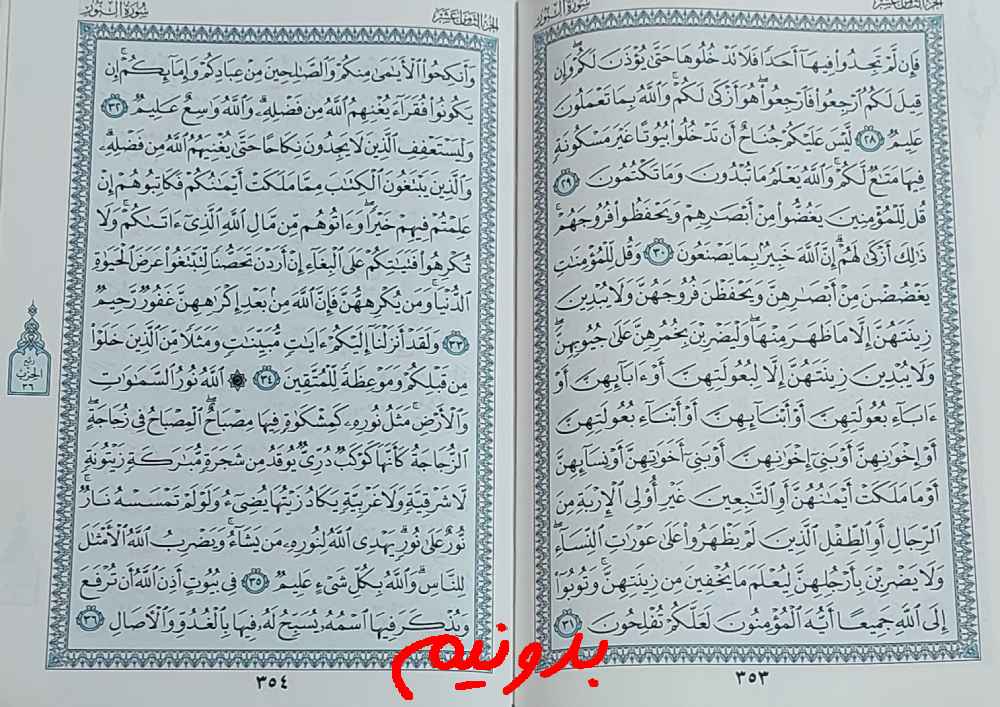 الجزء الثامن عشر
سورة النور
فَإِن لَّمْ تَجِدُوا۟ فِيهَآ أَحَدًا فَلَا تَدْخُلُوهَا حَتَّىٰ يُؤْذَنَ لَكُمْ ۖ وَإِن
قِيلَ لَكُمُ ٱرْجِعُوا۟ فَٱرْجِعُوا۟ ۖ هُوَ أَزْكَىٰ لَكُمْ ۚ وَٱللَّهُ بِمَا تَعْمَلُونَ
عَلِيمٌ ٢٨ لَّيْسَ عَلَيْكُمْ جُنَاحٌ أَن تَدْخُلُوا۟ بُيُوتًا غَيْرَ مَسْكُونَةٍ
فِيهَا مَتَـٰعٌ لَّكُمْ ۚ وَٱللَّهُ يَعْلَمُ مَا تُبْدُونَ وَمَا تَكْتُمُونَ ٢٩
قُل لِّلْمُؤْمِنِينَ يَغُضُّوا۟ مِنْ أَبْصَـٰرِهِمْ وَيَحْفَظُوا۟ فُرُوجَهُمْ ۚ
ذَٰلِكَ أَزْكَىٰ لَهُمْ ۗ إِنَّ ٱللَّهَ خَبِيرٌۢ بِمَا يَصْنَعُونَ ٣٠ وَقُل لِّلْمُؤْمِنَـٰتِ
يَغْضُضْنَ مِنْ أَبْصَـٰرِهِنَّ وَيَحْفَظْنَ فُرُوجَهُنَّ وَلَا يُبْدِينَ
زِينَتَهُنَّ إِلَّا مَا ظَهَرَ مِنْهَا ۖ وَلْيَضْرِبْنَ بِخُمُرِهِنَّ عَلَىٰ جُيُوبِهِنَّ ۖ
وَلَا يُبْدِينَ زِينَتَهُنَّ إِلَّا لِبُعُولَتِهِنَّ أَوْ ءَابَآئِهِنَّ أَوْ
ءَابَآءِ بُعُولَتِهِنَّ أَوْ أَبْنَآئِهِنَّ أَوْ أَبْنَآءِ بُعُولَتِهِنَّ
أَوْ إِخْوَٰنِهِنَّ أَوْ بَنِىٓ إِخْوَٰنِهِنَّ أَوْ بَنِىٓ أَخَوَٰتِهِنَّ أَوْ نِسَآئِهِنَّ
أَوْ مَا مَلَكَتْ أَيْمَـٰنُهُنَّ أَوِ ٱلتَّـٰبِعِينَ غَيْرِ أُو۟لِى ٱلْإِرْبَةِ مِنَ
ٱلرِّجَالِ أَوِ ٱلطِّفْلِ ٱلَّذِينَ لَمْ يَظْهَرُوا۟ عَلَىٰ عَوْرَٰتِ ٱلنِّسَآءِ ۖ
وَلَا يَضْرِبْنَ بِأَرْجُلِهِنَّ لِيُعْلَمَ مَا يُخْفِينَ مِن زِينَتِهِنَّ ۚ وَتُوبُوٓا۟
إِلَى ٱللَّهِ جَمِيعًا أَيُّهَ ٱلْمُؤْمِنُونَ لَعَلَّكُمْ تُفْلِحُونَ ٣١
٣٥٣
الجزء الثامن عشر
سورة النور
وَأَنكِحُوا۟ ٱلْأَيَـٰمَىٰ مِنكُمْ وَٱلصَّـٰلِحِينَ مِنْ عِبَادِكُمْ وَإِمَآئِكُمْ ۚ إِن
يَكُونُوا۟ فُقَرَآءَ يُغْنِهِمُ ٱللَّهُ مِن فَضْلِهِۦ ۗ وَٱللَّهُ وَٰسِعٌ عَلِيمٌ ٣٢
وَلْيَسْتَعْفِفِ ٱلَّذِينَ لَا يَجِدُونَ نِكَاحًا حَتَّىٰ يُغْنِيَهُمُ ٱللَّهُ مِن فَضْلِهِۦ ۗ
وَٱلَّذِينَ يَبْتَغُونَ ٱلْكِتَـٰبَ مِمَّا مَلَكَتْ أَيْمَـٰنُكُمْ فَكَاتِبُوهُمْ إِنْ
عَلِمْتُمْ فِيهِمْ خَيْرًا ۖ وَءَاتُوهُم مِّن مَّالِ ٱللَّهِ ٱلَّذِىٓ ءَاتَىٰكُمْ ۚ وَلَا
تُكْرِهُوا۟ فَتَيَـٰتِكُمْ عَلَى ٱلْبِغَآءِ إِنْ أَرَدْنَ تَحَصُّنًا لِّتَبْتَغُوا۟ عَرَضَ ٱلْحَيَوٰةِ
ٱلدُّنْيَا ۚ وَمَن يُكْرِههُّنَّ فَإِنَّ ٱللَّهَ مِنۢ بَعْدِ إِكْرَٰهِهِنَّ غَفُورٌ رَّحِيمٌ
٣٣ وَلَقَدْ أَنزَلْنَآ إِلَيْكُمْ ءَايَـٰتٍ مُّبَيِّنَـٰتٍ وَمَثَلًا مِّنَ ٱلَّذِينَ خَلَوْا۟
مِن قَبْلِكُمْ وَمَوْعِظَةً لِّلْمُتَّقِينَ ٣٤ ۞ ٱللَّهُ نُورُ ٱلسَّمَـٰوَٰتِ
وَٱلْأَرْضِ ۚ مَثَلُ نُورِهِۦ كَمِشْكَوٰةٍ فِيهَا مِصْبَاحٌ ۖ ٱلْمِصْبَاحُ فِى زُجَاجَةٍ ۖ
ٱلزُّجَاجَةُ كَأَنَّهَا كَوْكَبٌ دُرِّىٌّ يُوقَدُ مِن شَجَرَةٍ مُّبَـٰرَكَةٍ زَيْتُونَةٍ
لَّا شَرْقِيَّةٍ وَلَا غَرْبِيَّةٍ يَكَادُ زَيْتُهَا يُضِىٓءُ وَلَوْ لَمْ تَمْسَسْهُ نَارٌ ۚ
نُّورٌ عَلَىٰ نُورٍ ۗ يَهْدِى ٱللَّهُ لِنُورِهِۦ مَن يَشَآءُ ۚ وَيَضْرِبُ ٱللَّهُ ٱلْأَمْثَـٰلَ
لِلنَّاسِ ۗ وَٱللَّهُ بِكُلِّ شَىْءٍ عَلِيمٌ ٣٥ فِى بُيُوتٍ أَذِنَ ٱللَّهُ أَن تُرْفَعَ
وَيُذْكَرَ فِيهَا ٱسْمُهُۥ يُسَبِّحُ لَهُۥ فِيهَا بِٱلْغُدُوِّ وَٱلْـَٔاصَالِ ٣٦
ربع
الحزب
٣٦
٣٥٤
بدونیم